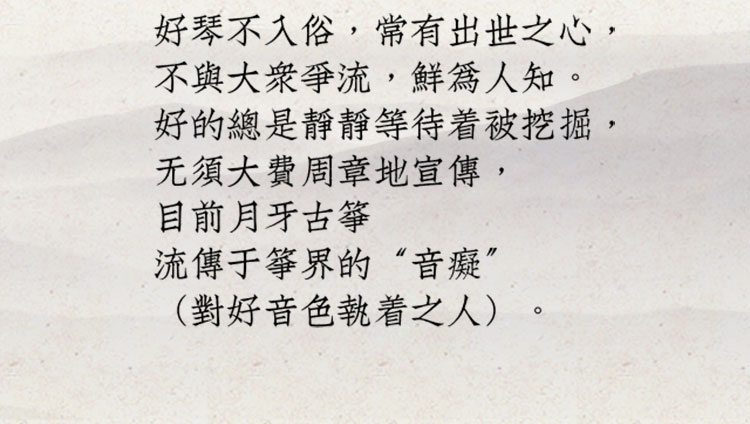 好琴不入俗，常有出世之心，
不與大衆爭流，鮮爲人知。
好的總是靜靜等待着被挖掘，
无須大費周章地宣傳，
目前月牙古箏
流傳于箏界的“音癡”
（對好音色執着之人）。